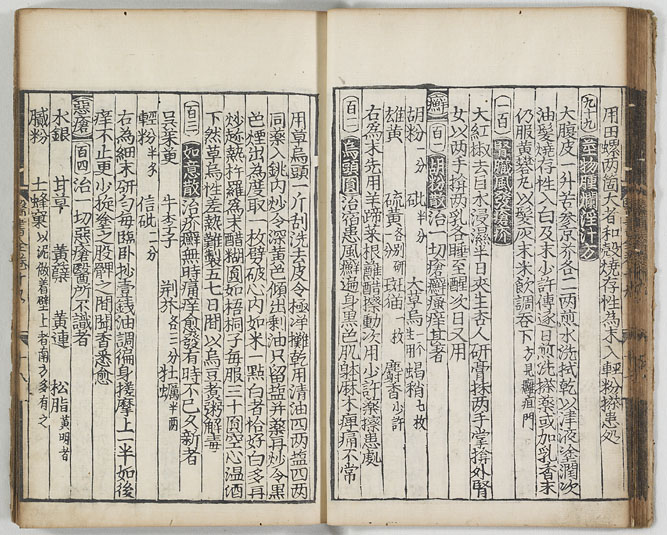 用田螺兩箇大者和殼燒存性為末入輕粉搽患処
九十九 莖物腫爛淫汁方
大腹皮一升苦參京芥各二兩煎水洗拭乾以津液塗潤次
油髮燒存性入白及末少許傅逐日煎洗搽藥或加乳香末
仍服黃礬丸以髮灰末米飲調吞下 方見癰疽門
一百 腎臟風發瘡疥
大紅椒去目水浸濕半日夾生杏人研膏抹兩手掌掩外腎
女以兩手掩兩乳各睡至醒次日又用
癬 百一 胡粉散 治一切瘡癬瘙痒甚者
胡粉 砒半分 大草烏生用 蝎稍七枚
雄黃 硫黃各別研 斑猫一枚 麝香少許
右為末先用羊蹄菜根蘸醋擦動次用少許藥擦患處
百二 烏頭圓 治宿患風癬遍身黑色肌躰麻木痹痛不常
用草烏頭一斤刮洗去皮令極洋攤乾用清油四兩盐四兩
同藥入銚內炒令深黃色傾出剩油只留盐并藥再炒令黑
色煙出為度取一枚劈破心內如米一點白者恰好白多再
炒趂熱杵羅為末醋糊圓如梧桐子每服三十圓空心温酒
下然草烏性差熱難製五七日間以烏豆煮粥解毒
百三 如意散 治疥癬無時痛痒愈發有時不已久新者
吳茱萸 牛李子 荊芥各三分 牡蠣半兩
輕粉半分 信砒二分
右為細末研勻每臨臥抄壹錢油調徧身搓摩上一半如後
痒不止更少捉塗之股髀之間聞香悉愈
惡瘡 百四 治一切惡瘡醫所不識者
水銀 甘草 黃蘗 黃連 松脂黃明者
膩粉 土蜂窠以泥做着壁上者南方多有之